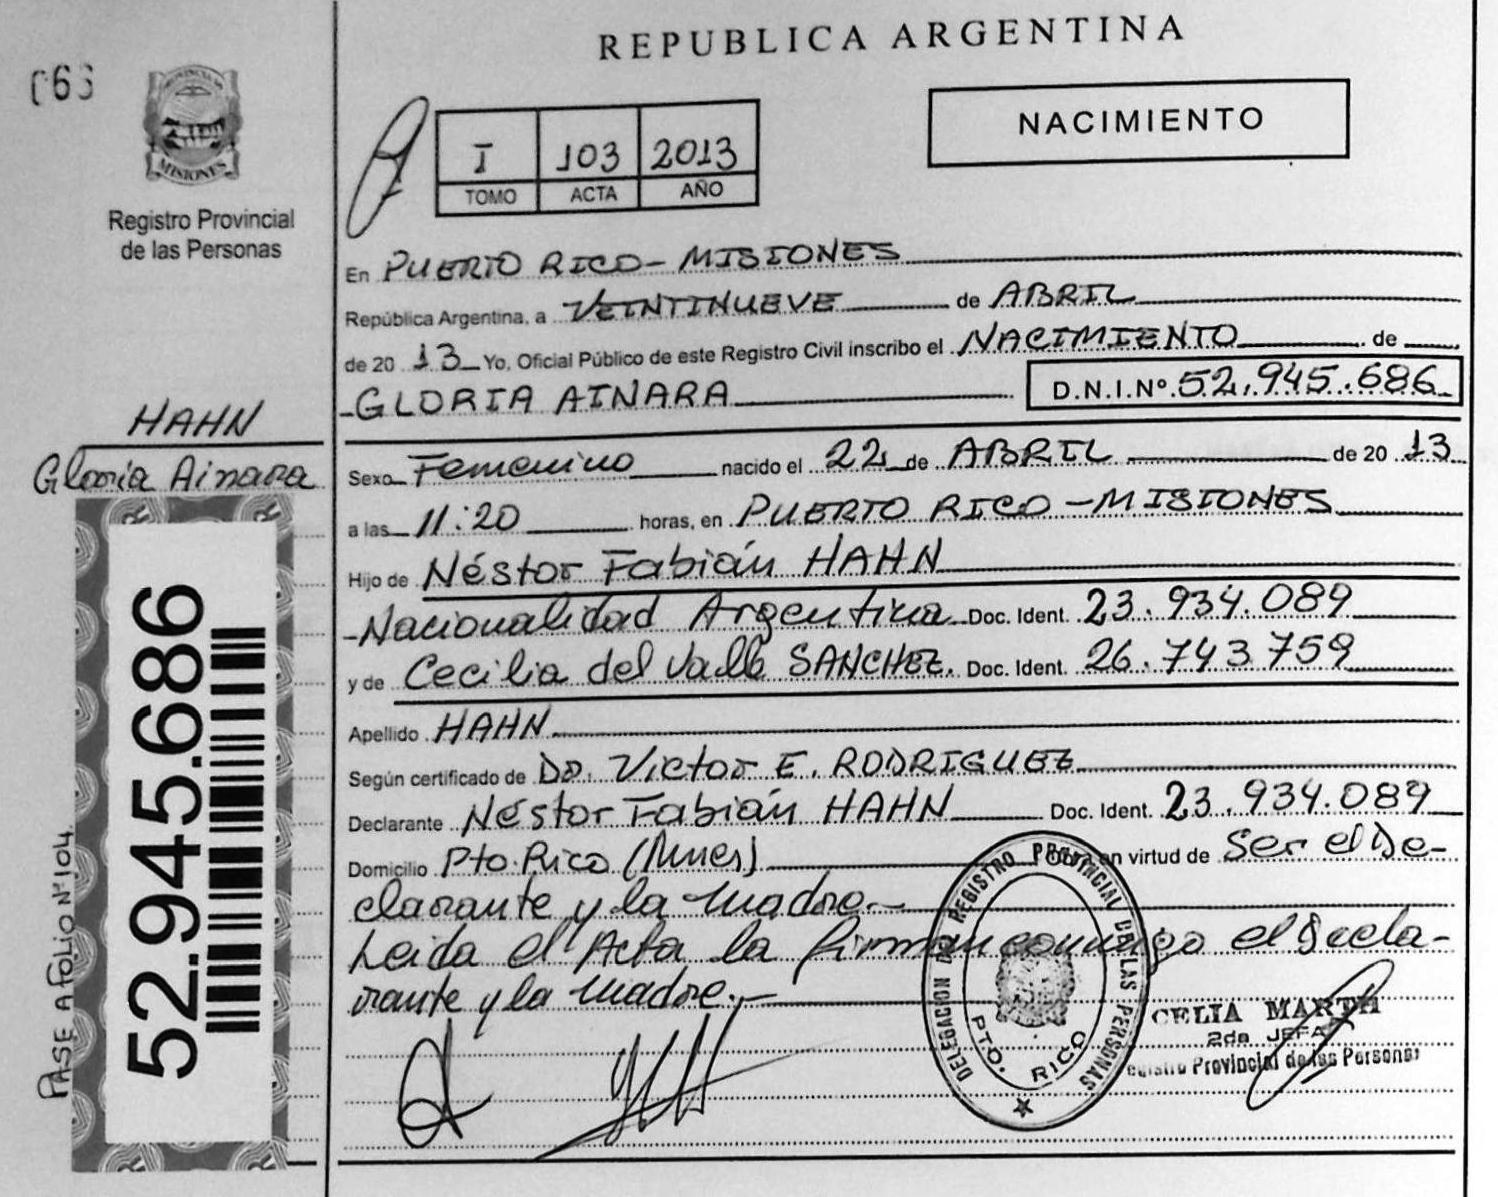 REPUBLICA ARGENTINA
NACIMIENTO
066
MISIONES
Registro Provincial
de las Personas
I 103 2013
TOMO ACTA AÑO
En PUERTO RICO - MISIONES
República Argentina, a VEINTINUEVE de ABRIL
de 20 13 Yo, Oficial Público de este Registro Civil inscribo el NACIMIENTO de
GLORIA AINARA D.N.I.Nº 52.945.686
HAHN
Gloria Ainara
Sexo Femenino nacido el 22 de ABRIL de 20 13
a las 11:20 horas, en PUERTO RICO - MISIONES
Hijo de Néstor Fabián HAHN
Nacionalidad Argentina Doc. Ident. 23.934.089
y de Cecilia del Valle SANCHEZ. Doc. Ident. 26.743759
Apellido HAHN
Según certificado de Dr. Victor E. RODRIGUEZ
Declarante Néstor Fabián HAHN Doc. Ident. 23.934.089
Domicilio Pto. Rico (Mnes) en virtud de Ser el De-
clarante y la madre.-
Leida el Acta la firman conmigo el Decla-
rante y la madre.-
52.945.686
PASE A FOLIO Nº 104
DELEGACION DEL REGISTRO PROVINCIAL DE LAS PERSONAS
PTO. RICO
CELIA MARTH
2da JEFA
Registro Provincial de las Personas